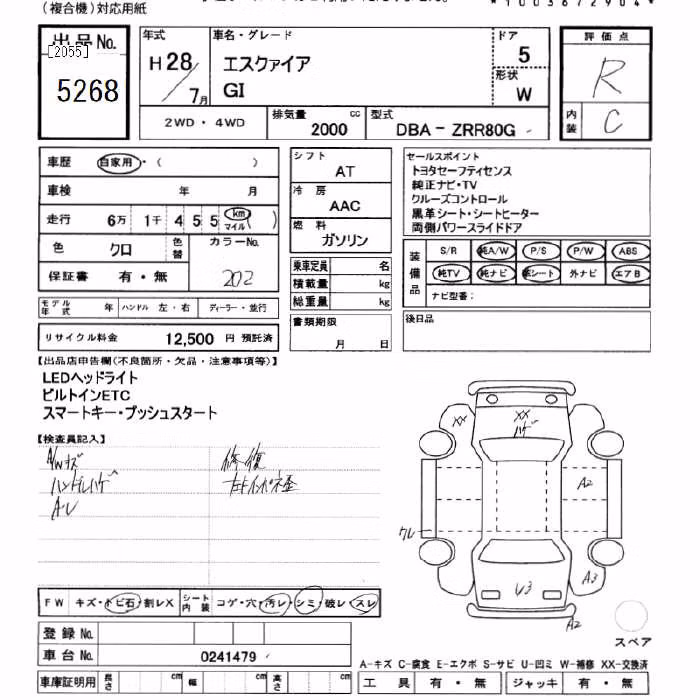 (複合機)対応用紙
*1003672904*
出品No.
[2055]
5268
年式
H28/7月
車名・グレード
エスクァイア
GI
ドア
5
形状
W
評価点
R
内装
C
2WD・4WD
排気量
2000 cc
型式
DBA－ZRR80G
車歴 自家用・( )
車検 年 月
走行 6万 1千 4 5 5 (km マイル)
色 クロ 色替
カラーNo.
202
保証書 有・無
モデル年式 年 ハンドル 左・右 ディーラー・並行
リサイクル料金 12,500 円 預託済
シフト
AT
冷房
AAC
燃料
ガソリン
乗車定員 名
積載量 kg
総重量 kg
書類期限
月 日
セールスポイント
トヨタセーフティセンス
純正ナビ・TV
クルーズコントロール
黒革シート・シートヒーター
両側パワースライドドア
装備品
S/R 純A/W P/S P/W ABS
純TV 純ナビ 革シート 外ナビ エアB
ナビ型番:
後日品
【出品店申告欄(不良箇所・欠品・注意事項等)】
LEDヘッドライト
ビルトインETC
スマートキー・プッシュスタート
【検査員記入】
A/Wキズ
ハンドルハゲ
修復
XX
XX
ハゲ
A2
クレ
U3
A3
A2
スペア
FW キズ・トビ石・割レX シート内装 コゲ・穴・汚レ・シミ・破レ・スレ
登録No.
車台No. 0241479
車庫証明用 長さ cm 幅 cm 高さ cm
A-キズ C-腐食 E-エクボ S-サビ U-凹ミ W-補修 XX-交換済
工具 有・無 ジャッキ 有・無